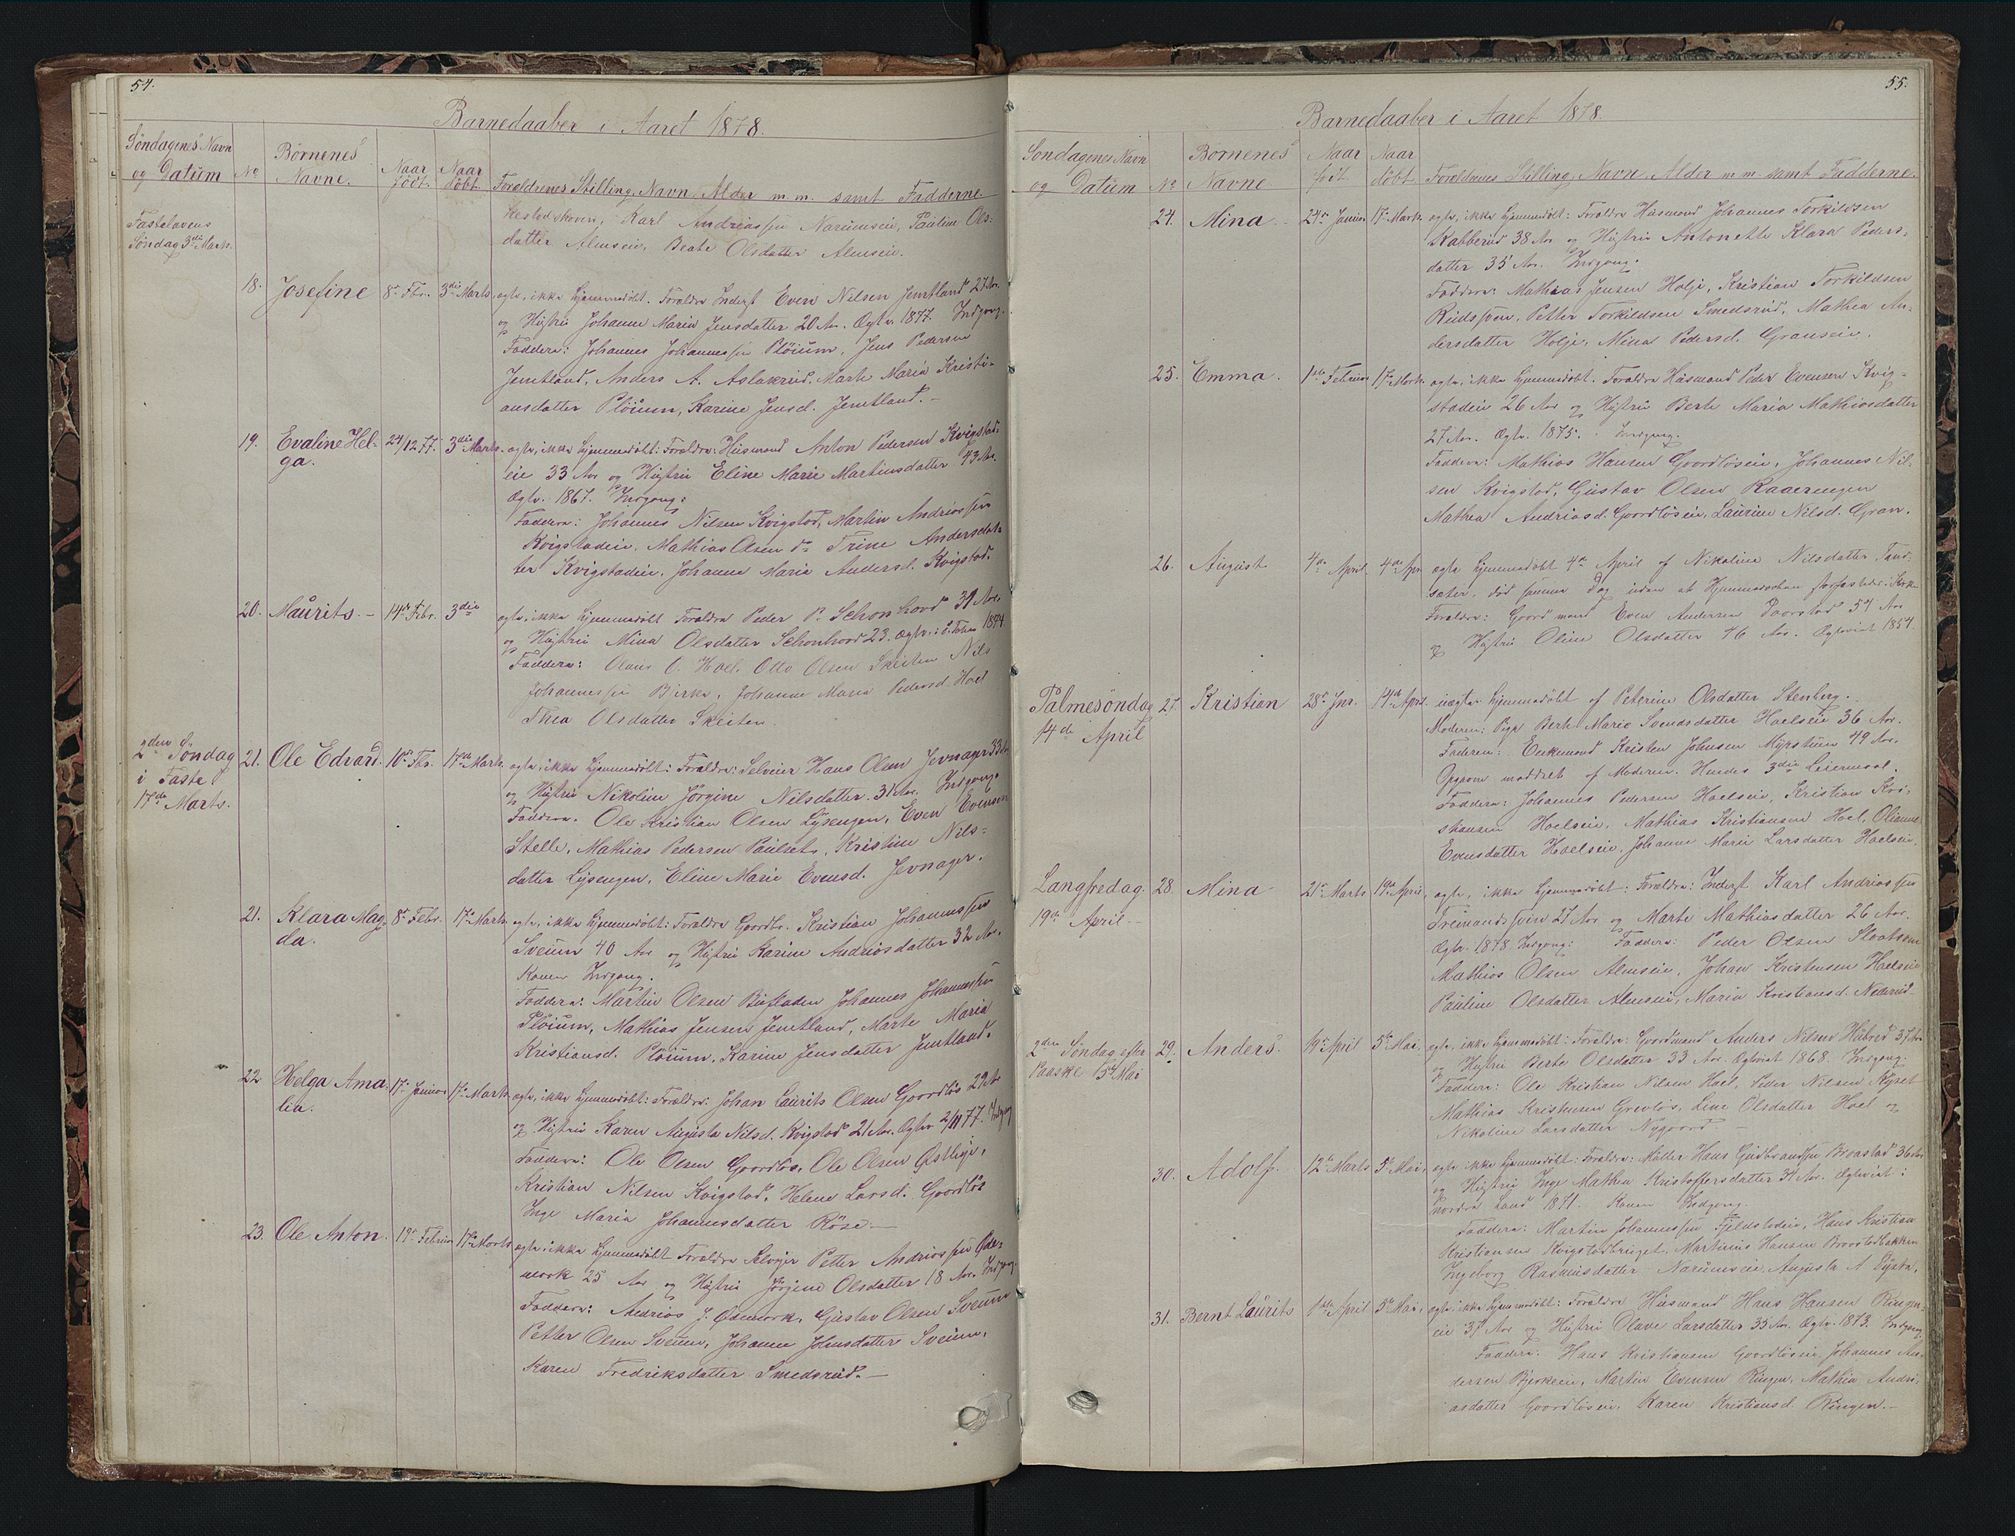 54.
Barnedaaber i Aaret 1878.
Søndagenes Navn og Datum No Børnenes Navne. Naar født. Naar døbt. Forældrenes Stilling, Navn, Alder m. m. samt Fadderne
Fastelavens
Søndag 3die Marts.
Karl Andreassen Narumseie, Pauline Ols-
datter Almseie, Beate Olsdatter Almseie.
18. Josefine 8de Fbr. 3die Marts. ægte, ikke hjemmedøbt. Forældre Inderst Even Nilsen Jemtland 27 Ar.
og Hustru Johanne Maria Jensdatter 20 Ar. Ægtv. 1877. Indgang.
Faddere: Johannes Johannessen Pløium, Jens Pedersen
Jemtland, Anders A. Aslakrud, Marte Maria Kristi-
ansdatter Pløium, Karine Jensd. Jemtland.-
19. Evaline Hel- 24/12 77. 3die Marts. ægte, ikke hjemmedøbt: Forældre: Husmand Anton Pedersen Kvigstad-
ga.
eie 33 Ar og Hustru Eline Marie Martinsdatter 43 Ar.
Ægtv. 1867. Indgang:
Faddere: Johannes Nilsen Kvigstad, Martin Andriassen
Kvigstadeie, Mathias Olsen do Trine Andersdat-
ter Kvigstadeie, Johanne Maria Andersd. Kvigstad.
20. Maurits. - 14de Febr. 3die ægte, ikke hjemmedøbt Forældre Peder P. Schonhovd 31 Ar.
og Hustru Mina Olsdatter Schonhovd 23. Ægtv. i 1874.
Faddere: Olaus O. Hoel. Otto Olsen Skeiten Nils
Johannessen Birke, Johanne Maria Pedersd Hoel
Thea Olsdatter Skeiten.
2den Søndag 21. Ole Edvard. 10de Fbr. 17de Marts. ægte, ikke hjemmedøbt: Forældre: Selveier Hans Olsen Jevnager 33 Ar
i Faste
17de Marts.
og Hustru Nikoline Jørgine Nilsdatter. 31 Ar. Indgang.
Faddere. Ole Kristian Olsen Lysengen, Even Evensen
Stelle, Mathias Pedersen Paulset, Kristine Nils-
datter Lysengen, Eline Marie Evensd. Jevnager.
21. Klara Mag- 8de Febr. 17de Marts ægte, ikke hjemmedøbt: Forældre Gaardbr. Kristian Johannessen
da.
Sveum 40 Ar og Hustru Karine Andriasdatter 32 Ar.
Konen Indgang.
Faddere: Martin Olsen Johannes Johannessen
Pløium, Mathias Jensen Jemtland, Marte Maria
Kristiansd. Pløium, Karine Jensdatter Jemtland.
22. Helga Ama- 17de Januar 17de Marts ægte, ikke hjemmedøbt: Forældre: Johan Laurits Olsen Gaardløs 29 Ar
lia.
og Hustru Karen Augusta Nilsd. Kvigstad 21 Ar. Ægtv 2/11 77. Indgang
Faddere: Ole Olsen Gaardløs, Ole Olsen Østlige,
Kristian Nilsen Kvigstad, Helene Larsd. Gaardløs
Inge Maria Johannesdatter Røse.-
23. Ole Anton. 19de Februar 17de Marts ægte, ikke hjemmedøbt Forældre Selveier Petter Andriassen Øde-
mork 25 Ar og Hustru Jørgine Olsdatter 18 Ar. Indgang.
Faddere: Andrias J. Ødemork, Gustav Olsen Sveum
Petter Olsen Sveum, Johanne Johnsdatter Sveum,
Karen Fredriksdatter Smedsrud.-
55.
Barnedaaber i Aaret 1878.
Søndagenes Navn og Datum No Børnenes Navne Naar født Naar døbt Forældrenes Stilling, Navn, Alder m. m. samt Fadderne.
24. Mina 24de Januar 17de Marts. ægte, ikke hjemmedøbt: Forældre Husmand Johannes Torkildsen
Rabberud 38 Ar og Hustru Antonette Klara Peders-
datter 35 Ar. Indgang.
Faddere: Mathias Jensen Holje, Kristian Torkildsen
Petter Torkildsen Smedsrud, Mathea An-
dersdatter Holje, Mina Pedersd. Granseie.
25. Emma. 1ste Februar 17de Marts. ægte, ikke hjemmedøbt. Forældre Husmand Peder Evensen Kvig-
stadeie 26 Ar og Hustru Berte Maria Mathiasdatter
27 Ar. Ægtv. 1875. Indgang.
Faddere: Mathias Hansen Gaardløseie, Johannes Nil-
sen Kvigstad, Gustav Olsen Raaeringen
Mathea Andriasd. Gaardløseie, Laurine Nilsd. Gran.
26. August 4de April. 4de Apr ægte hjemmedøbt 4de April af Nikoline Nilsdatter
død samme Dag uden at Hjemmedaaben
Forældre: Gaardmand Even Andersen Paarstad 54 Ar
og Hustru Oline Olsdatter 46 Ar. Ægteviet 1854.
Palmesøndag 27. Kristian 28de Jnr. 14de April. uægte hjemmedøbt af Peterine Olsdatter Stenberg.
14de April
Moderen: Pige Berte Marie Svendsdatter Hoelseie 36 Ar.
Faderen: Enkemand Kristen Johnsen Myrstuen 49 Ar.
af Moderen. Hendes 3die Leiermaal.
Faddere: Johannes Pedersen Hoelseie, Kristian Kri-
stiansen Hoelseie, Mathias Kristiansen Hoel, Olianne
Evensdatter Hoelseie, Johanne Marie Larsdatter Hoelseie,
Langfredag. 28. Mina 21de Marts 19de April. ægte, ikke hjemmedøbt: Forældre: Inderst Karl Andriassen
19de April-
27 Ar og Marte Mathiasdatter 26 Ar.
Ægtv. 1878. Indgang: Faddere: Peder Olsen
Mathias Olsen Almseie, Johan Kristensen Hoelseie
Pauline Olsdatter Almseie, Maria Kristiansd. Nederud-
2den Søndag efter 29. Anders. 14de April 5te Mai. ægte, ikke hjemmedøbt: Forældre: Gaardmand Anders Nilsen Hubred 37 Ar
Paaske 5te Mai
og Hustru Berte Olsdatter 33 Ar. Ægteviet 1868. Indgang.
Faddere: Ole Kristian Nilsen Hoel, Peder Nilsen Ryset
Mathias Kristensen Grevløs, Lene Olsdatter Hoel og
Nikoline Larsdatter Nygaard -
30. Adolf. 12te Marts 5te Mai. ægte ikke hjemmedøbt: Forældre: Møller Hans Gudbrandsen Braastad 36 Ar
og Hustru Inge Mathea Kristoffersdatter 31 Ar. Ægteviet i
Nordre Land 1871. Konen Indgang.
Faddere: Martin Johannessen Fjeldstadeie, Hans Kristian
Kristiansen Kvigstadbruget, Martinus Hansen Braastadbakken
Ingeborg Rasmusdatter Narumseie, Augusta A Dysta,
31. Bernt Laurits 1ste April 5te Mai, ægte, ikke hjemmedøbt: Forældre Husmand Hans Hansen Ringen-
eie 37 Ar og Hustru Olave Larsdatter 35 Ar. Ægtv. 1873. Indgang
Faddere: Hans Kristiansen Gaardløseie Johannes An-
dersen Bjerkeeie, Martin Evensen Ringen, Mathea Andri-
asdatter Gaardløseie, Karen Kristiansd. Ringen.-